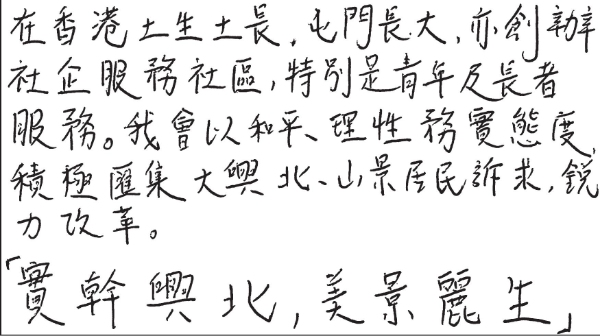 在香港土生土長，屯門長大，亦創辦
社企服務社區，特別是青年及長者
服務。我會以和平、理性務實態度，
積極匯集大興北、山景居民訴求，銳
力改革。
「實幹興北，美景麗生」